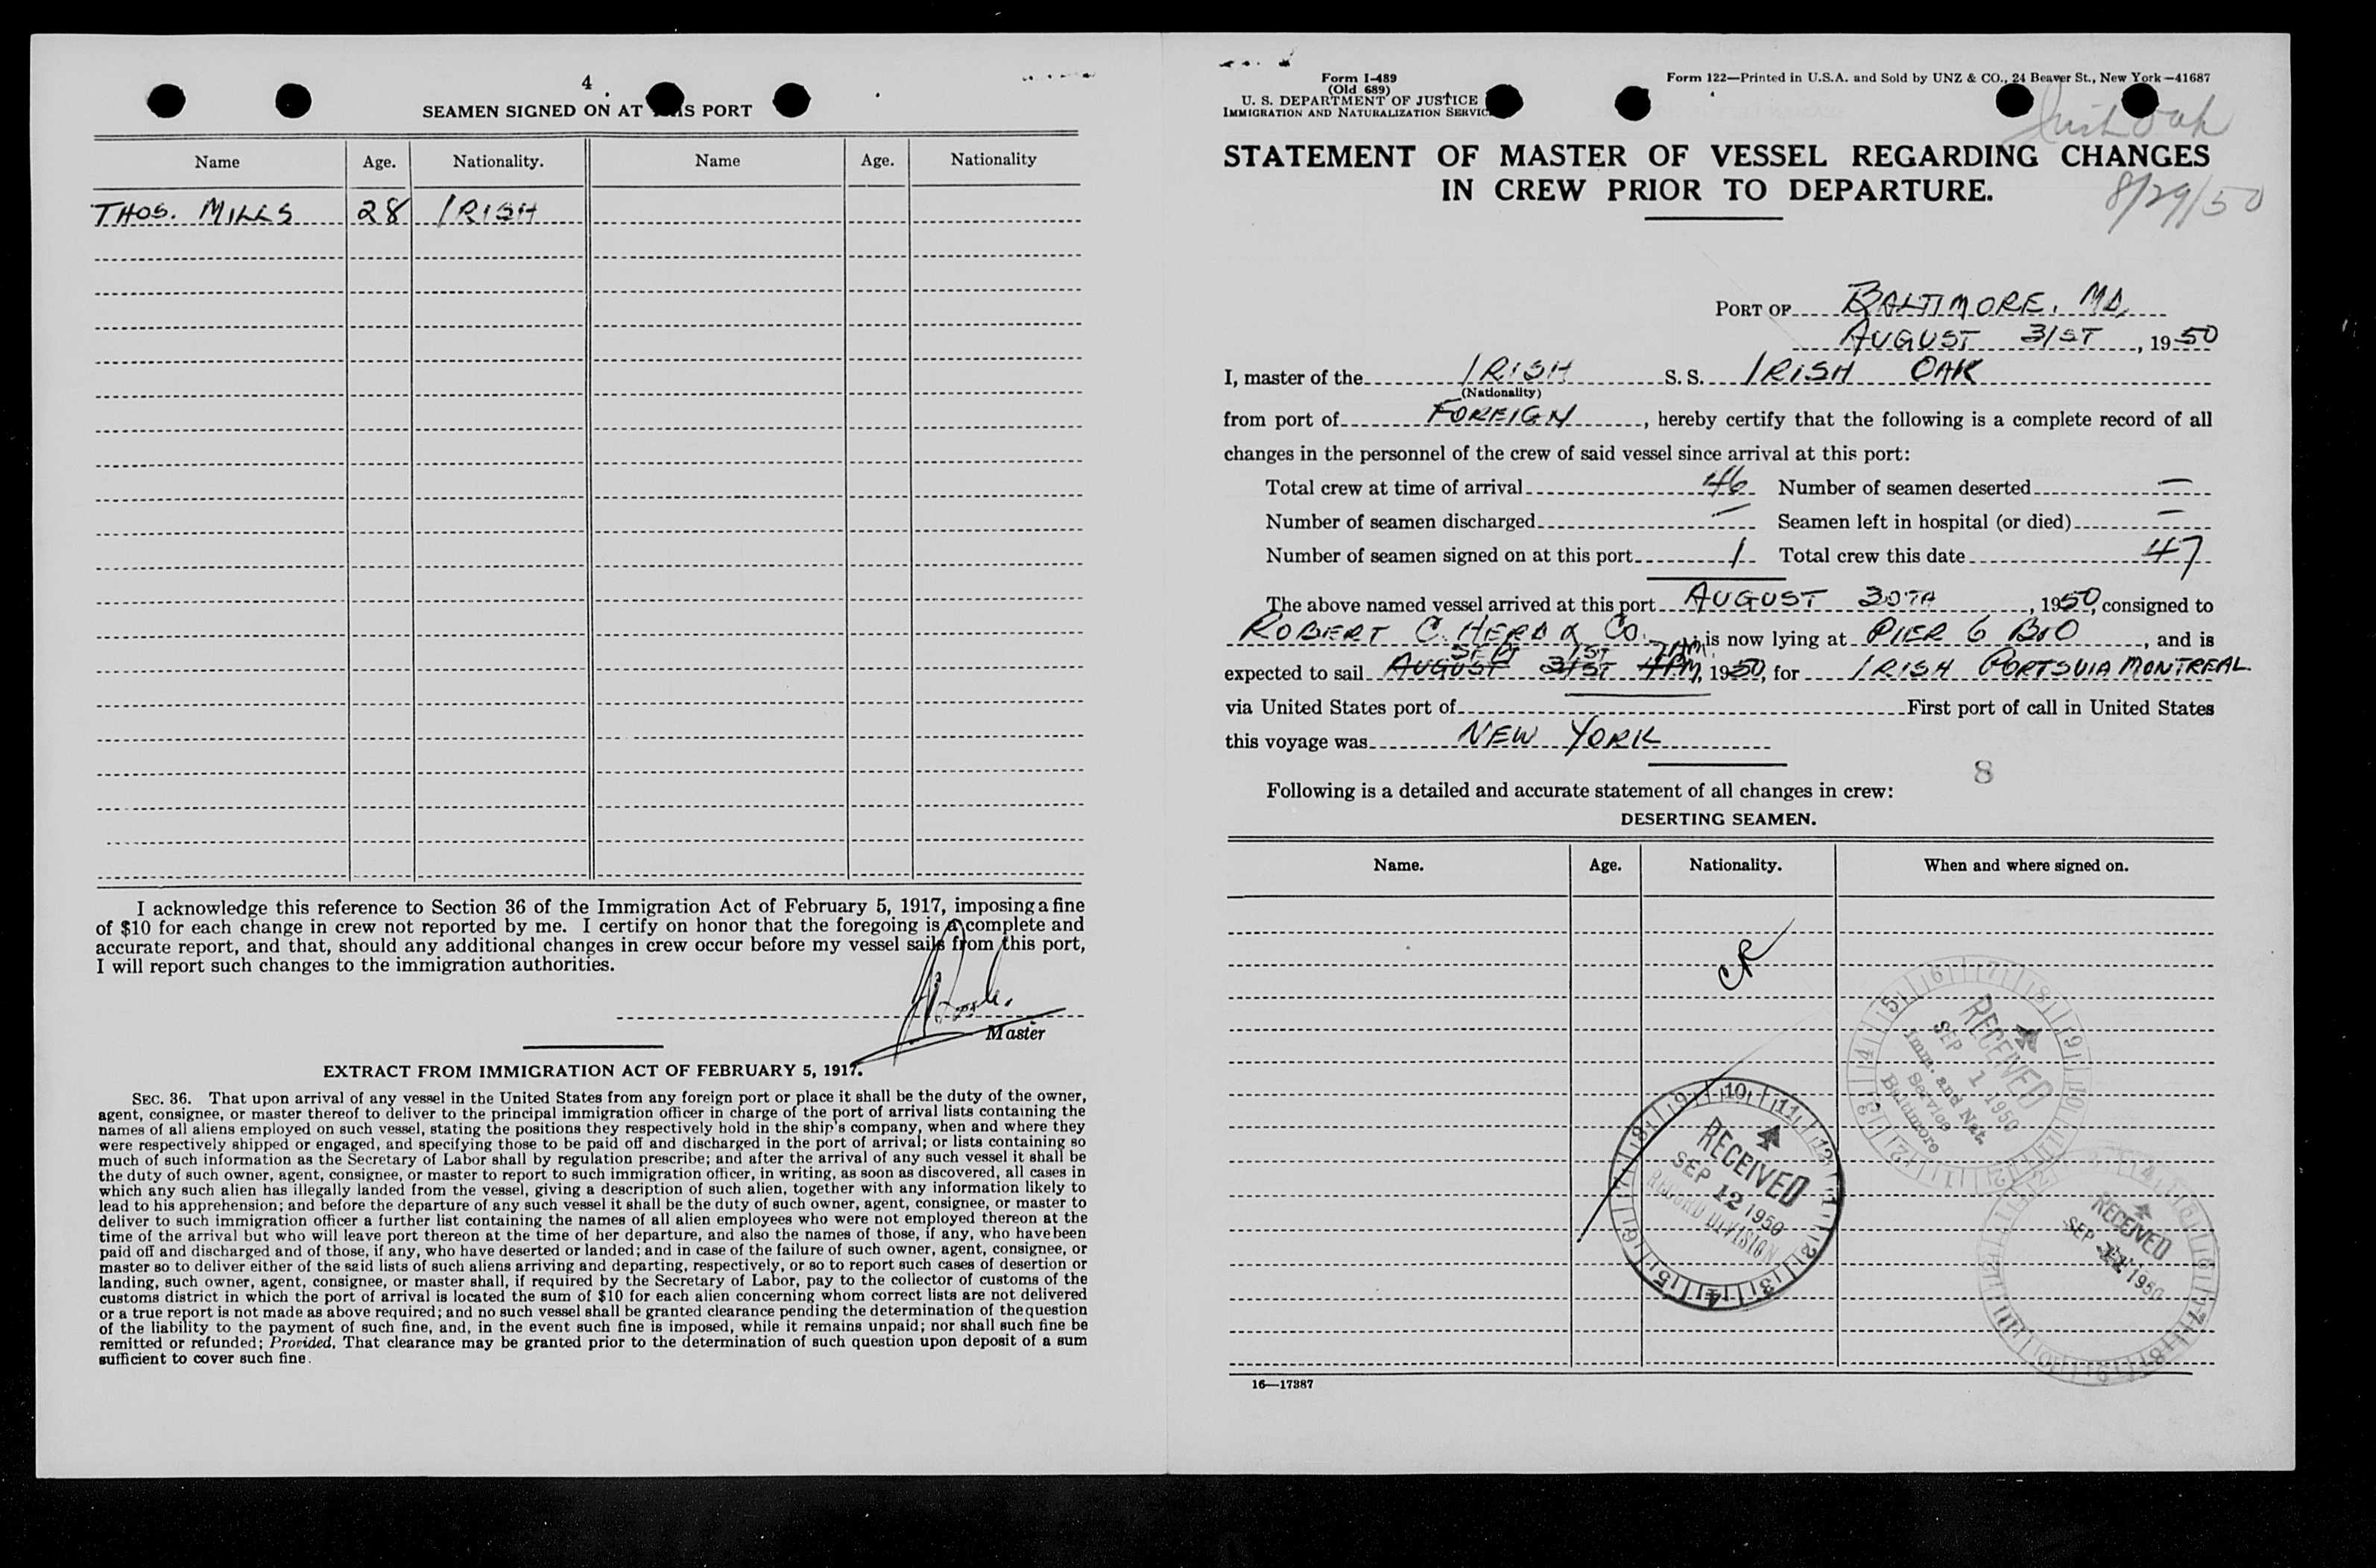 4
SEAMEN SIGNED ON AT THIS PORT
Name Age. Nationality. Name Age. Nationality
THOS. MILLS 28 IRISH
I acknowledge this reference to Section 36 of the Immigration Act of February 5, 1917, imposing a fine
of $10 for each change in crew not reported by me. I certify on honor that the foregoing is a complete and
accurate report, and that, should any additional changes in crew occur before my vessel sails from this port,
I will report such changes to the immigration authorities.
Master
EXTRACT FROM IMMIGRATION ACT OF FEBRUARY 5, 1917.
SEC. 36. That upon arrival of any vessel in the United States from any foreign port or place it shall be the duty of the owner,
agent, consignee, or master thereof to deliver to the principal immigration officer in charge of the port of arrival lists containing the
names of all aliens employed on such vessel, stating the positions they respectively hold in the ship's company, when and where they
were respectively shipped or engaged, and specifying those to be paid off and discharged in the port of arrival; or lists containing so
much of such information as the Secretary of Labor shall by regulation prescribe; and after the arrival of any such vessel it shall be
the duty of such owner, agent, consignee, or master to report to such immigration officer, in writing, as soon as discovered, all cases in
which any such alien has illegally landed from the vessel, giving a description of such alien, together with any information likely to
lead to his apprehension; and before the departure of any such vessel it shall be the duty of such owner, agent, consignee, or master to
deliver to such immigration officer a further list containing the names of all alien employees who were not employed thereon at the
time of the arrival but who will leave port thereon at the time of her departure, and also the names of those, if any, who have been
paid off and discharged and of those, if any, who have deserted or landed; and in case of the failure of such owner, agent, consignee, or
master so to deliver either of the said lists of such aliens arriving and departing, respectively, or so to report such cases of desertion or
landing, such owner, agent, consignee, or master shall, if required by the Secretary of Labor, pay to the collector of customs of the
customs district in which the port of arrival is located the sum of $10 for each alien concerning whom correct lists are not delivered
or a true report is not made as above required; and no such vessel shall be granted clearance pending the determination of the question
of the liability to the payment of such fine, and, in the event such fine is imposed, while it remains unpaid; nor shall such fine be
remitted or refunded; Provided, That clearance may be granted prior to the determination of such question upon deposit of a sum
sufficient to cover such fine.
Form I-489
(Old 689)
U. S. DEPARTMENT OF JUSTICE
IMMIGRATION AND NATURALIZATION SERVICE
Form 122—Printed in U.S.A. and Sold by UNZ & CO., 24 Beaver St., New York—41687
Irish Oak
STATEMENT OF MASTER OF VESSEL REGARDING CHANGES
IN CREW PRIOR TO DEPARTURE.
8/29/50
PORT OF BALTIMORE, MD.
AUGUST 31ST, 1950
I, master of the IRISH S. S. IRISH OAK
(Nationality)
from port of FOREIGN, hereby certify that the following is a complete record of all
changes in the personnel of the crew of said vessel since arrival at this port:
Total crew at time of arrival 46 Number of seamen deserted —
Number of seamen discharged — Seamen left in hospital (or died) —
Number of seamen signed on at this port 1 Total crew this date 47
The above named vessel arrived at this port AUGUST 30TH, 1950, consigned to
ROBERT C. HERD & CO. is now lying at PIER 6 B&O, and is
SEPT 1ST 7AM
expected to sail AUGUST 31ST 4PM, 1950, for IRISH PORTS VIA MONTREAL
via United States port of First port of call in United States
this voyage was NEW YORK
8
Following is a detailed and accurate statement of all changes in crew:
DESERTING SEAMEN.
Name. Age. Nationality. When and where signed on.
CR
RECEIVED
SEP 1 1950
Imm. and Nat.
Service
Baltimore
RECEIVED
SEP 12 1950
RECORD DIVISION
RECEIVED
SEP 1950
16—17387